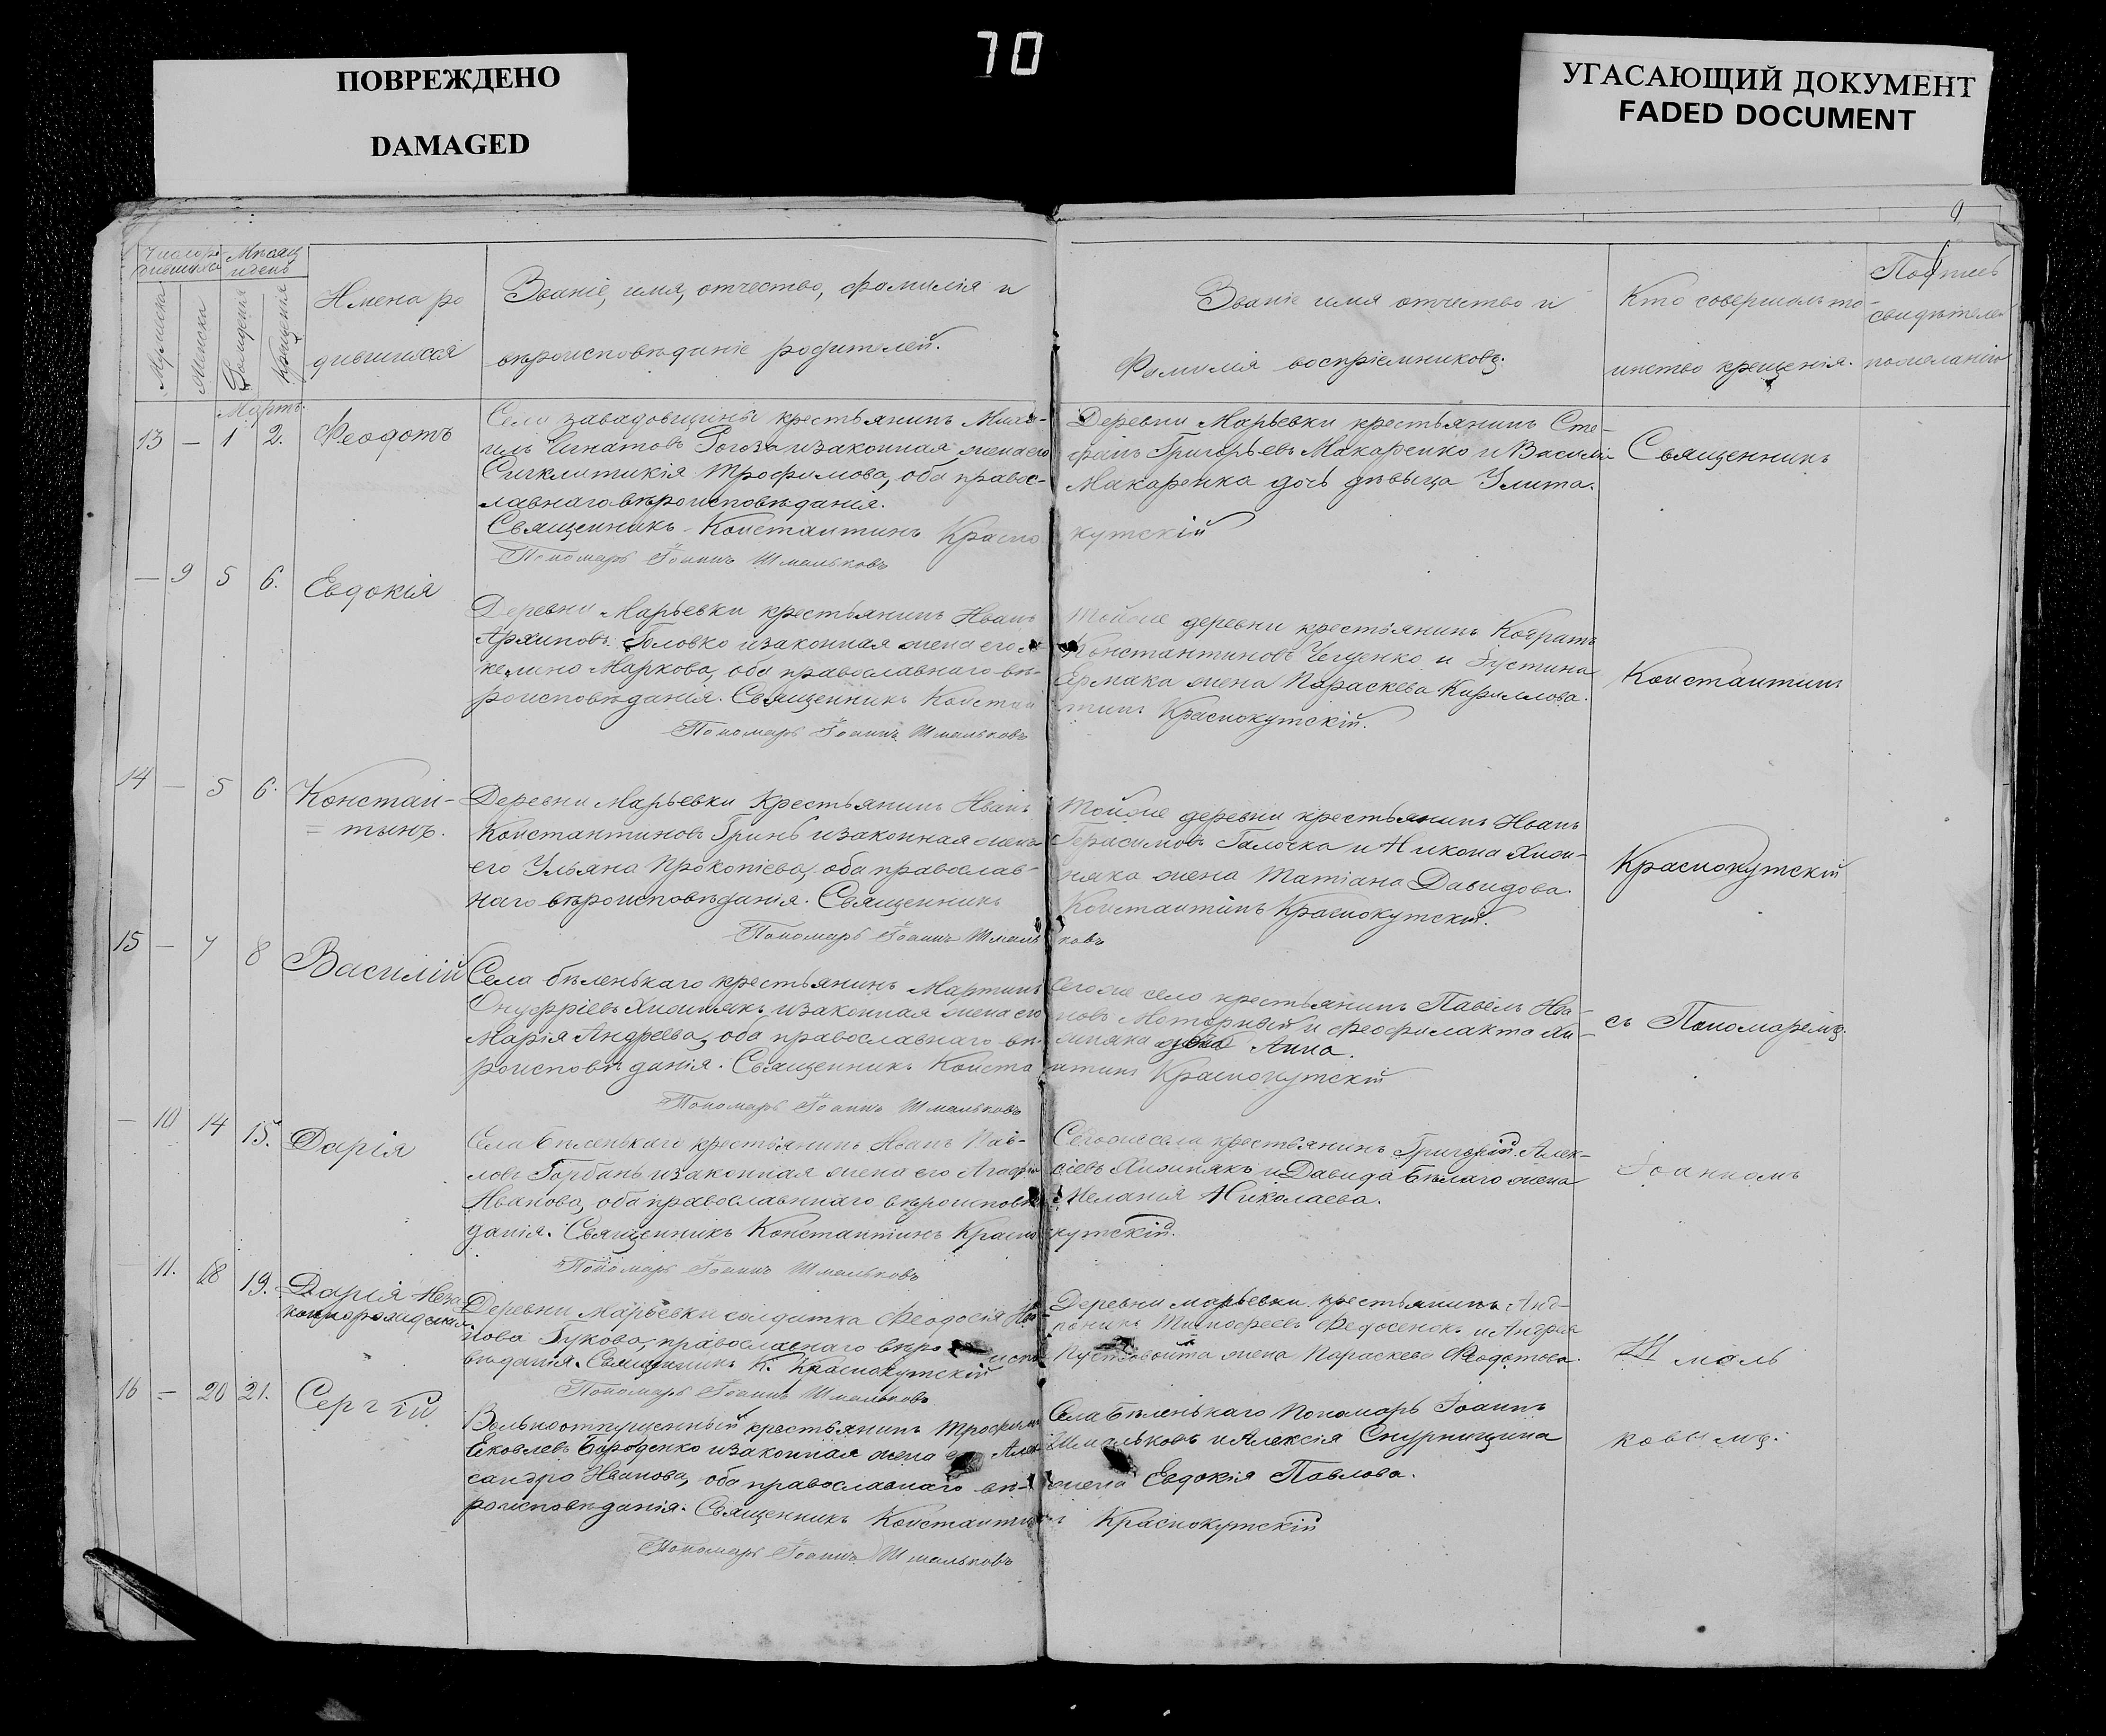 70
ПОВРЕЖДЕНО
DAMAGED
УГАСАЮЩИЙ ДОКУМЕНТ
FADED DOCUMENT
9
Мѣсяц
и день
Имена ро
дившихся
Званіе, имя, отчество, фамилія и
вѣроисповѣданіе родителей.
Званіе имя отчество и
Фамилія воспріемниковъ.
Кто совершалъ та-
инство крещенія.
свидѣтелей
по желанію
Мартъ.
13 — 1 2. Феодотъ
Села завадовщины крестьянинъ Миха-
илъ Игнатовъ Рогоза и законная жена его
Сигклитикія Трофимова, оба правос-
лавнаго вѣроисповѣданія.
Священникъ Константинъ Красно
Пономарь Іоаннъ Шмальковъ
Деревни Марьевки крестьянинъ Сте-
фанъ Григорьевъ Макаренко и Василія
Макаренка дочь дѣвица Улита.
кутскій
Священникъ
— 9 5 6. Евдокія
Деревни Марьевки крестьянинъ Иванъ
Архиповъ Головко и законная жена его
Маркова, оба православнаго вѣ-
роисповѣданія. Священникъ Констан
Пономарь Іоаннъ Шмальковъ
Тойже деревни крестьянинъ
Константиновъ и Іустина
Ермака жена Параскева Кириллова.
тинъ Краснокутскій.
Константинъ
14 — 5 6. Констан-
= тинъ.
Деревни Марьевки Крестьянинъ Иванъ
Константиновъ Гринь и законная жена
его Ульяна Прокопіева, оба православ-
наго вѣроисповѣданія. Священникъ
Пономарь Іоаннъ Шмаль
Тойже деревни крестьянинъ Иванъ
Герасимовъ Галочка и Никона Хиж-
няка жена Татіана Давидова.
Константинъ Краснокутскій.
ковъ
Краснокутскій
15 — 7 8 Василій
Села бѣленькаго крестьянинъ Мартинъ
Онуфріевъ Хижнякъ и законная жена его
Марія Андреева, оба православнаго вѣ-
роисповѣданія. Священникъ Конста
Пономарь Іоаннъ Шмальковъ
Сегоже село крестьянинъ Павелъ Ива-
новъ Моторный и Феофилакта Хи-
жняка Анна.
нтинъ Краснокутскій
съ Пономаремъ
— 10 14 15. Дарія
Села бѣленькаго крестьянинъ Иванъ Пав-
ловъ Горбань и законная жена его Агафія
Иванова, оба православнаго вѣроисповѣ
данія. Священникъ Константинъ Красно
Пономарь Іоаннъ Шмальковъ
Сегоже села крестьянинъ Григорій Алек-
сіевъ Хижнякъ и Давида Бѣлаго жена
Меланія Николаева.
кутскій.
Іоанномъ
— 11. 18 19. Дарія Неза
коннорожденная
Деревни Марьевки солдатка Феодосія Ива
нова Гукова, православнаго вѣро испо
вѣданія. Священникъ К. Краснокутскій
Пономарь Іоаннъ Шмальковъ
Деревни марьевки крестьянинъ Анд-
Тимофеевъ Федосенокъ и Андрея
Пустовойта жена Параскева Феодотова.
Шмаль
16 — 20 21. Сергѣй
Вольноотпущенный крестьянинъ Трофимъ
Яковлевъ Бороденко и законная жена его Алек-
сандра Иванова, оба православнаго вѣ-
роисповѣданія. Священникъ Константи
Пономарь Іоаннъ Шмальковъ
Села бѣленькаго Пономарь Іоаннъ
Шмальковъ и Алексія
жена Евдокія Павлова.
Краснокутскій
ковымъ.